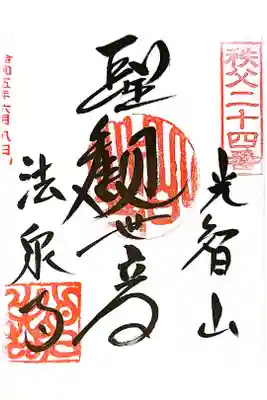 秩父二十四番
光智山
聖観世音
法泉寺
令和五年六月八日